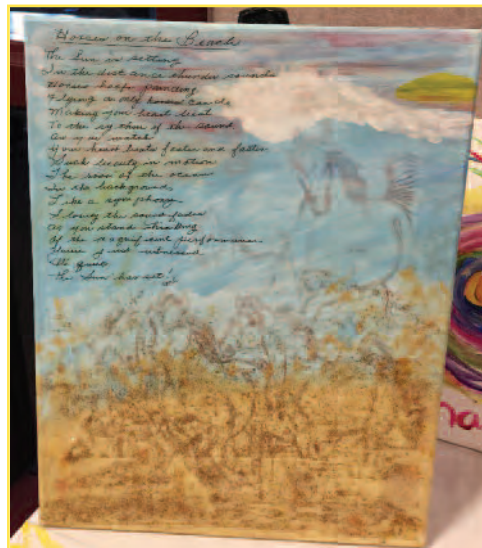 Horses on the Beach
The Sun is setting
In the distance thunder sounds
Horses hoofs pounding
Flying as only horses can do
Making your heart beat
To the rythm of the sound
As you watch
Your heart beats faster and faster
Such beauty in motion
The roar of the ocean
In the background
Like a symphony
Slowly the sound fades
As you stand thinking
Of the magnificent performance
you witnessed
Its quiet
the Sun has set!
na